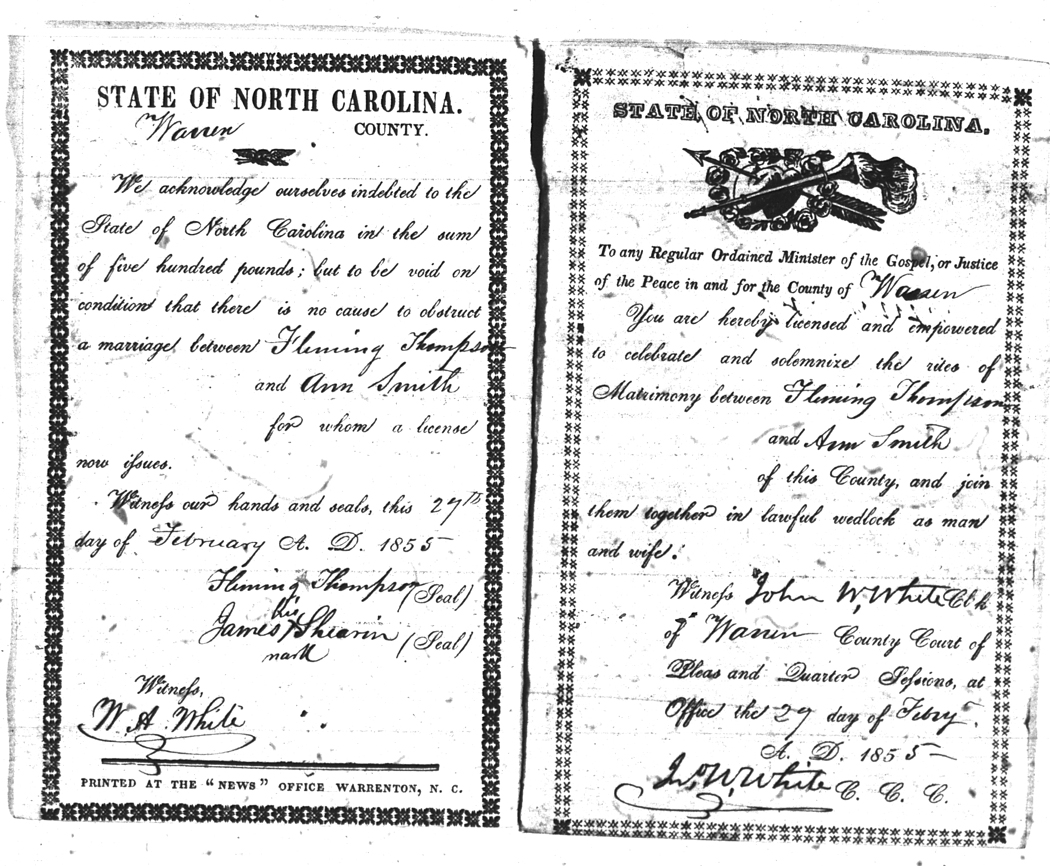 STATE OF NORTH CAROLINA.
Warren COUNTY.
We acknowledge ourselves indebted to the
State of North Carolina in the sum
of five hundred pounds; but to be void on
condition that there is no cause to obstruct
a marriage between Fleming Thompson
and Ann Smith
for whom a license
now issues.
Witness our hands and seals, this 27th
day of February A. D. 1855
Fleming Thompson (Seal)
his
James X Shearin (Seal)
mark
Witness,
W. A. White
PRINTED AT THE "NEWS" OFFICE WARRENTON, N. C.
STATE OF NORTH CAROLINA,
To any Regular Ordained Minister of the Gospel, or Justice
of the Peace in and for the County of Warren
You are hereby licensed and empowered
to celebrate and solemnize the rites of
Matrimony between Fleming Thompson
and Ann Smith
of this County, and join
them together in lawful wedlock as man
and wife.
Witness John W. White Clk
of Warren County Court of
Pleas and Quarter Sessions, at
Office the 27 day of Febry.
A. D. 1855
Jno. W. White C. C. C.